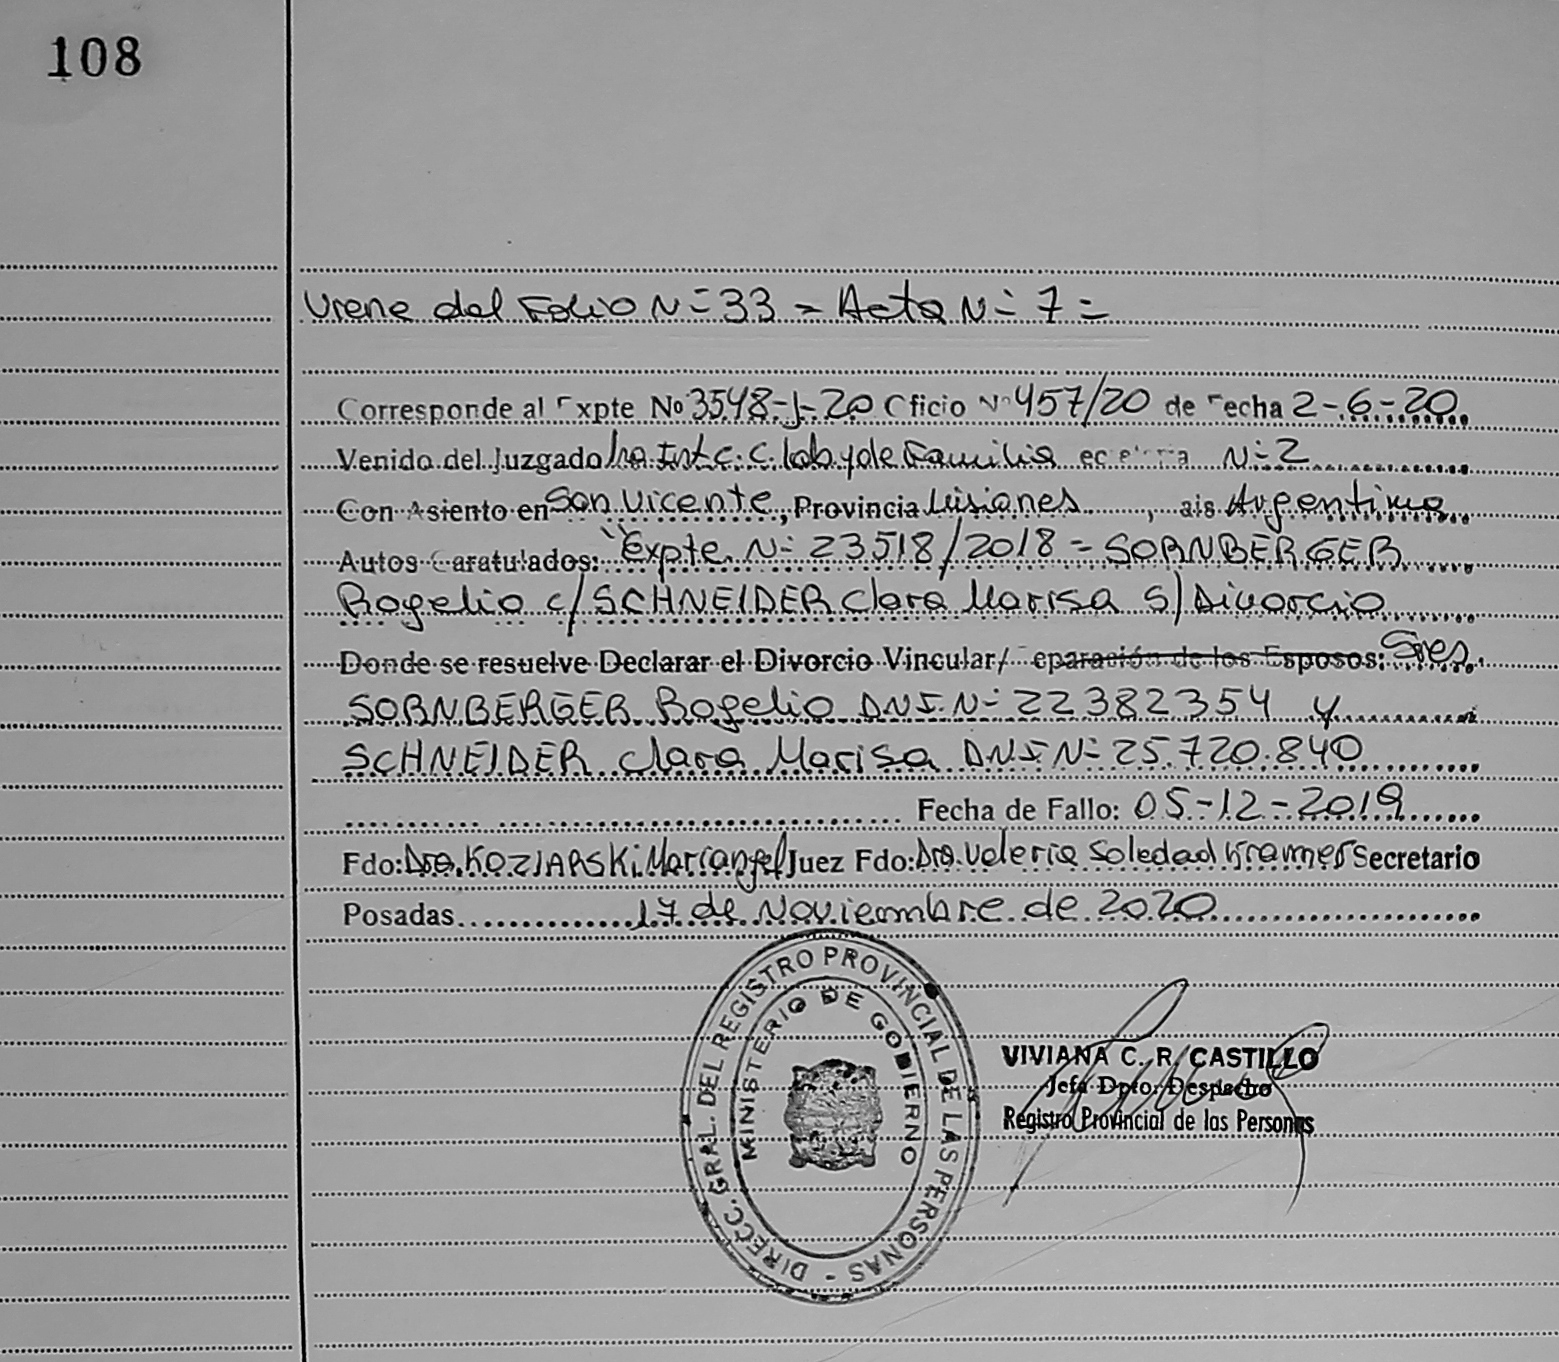 108
Viene del Folio Nº 33 = Acta Nº 7 =
Corresponde al Expte Nº 3548-J-20 Oficio Nº 457/20 de Fecha 2-6-20
Venido del Juzgado 1ra Inst C. C. Lab y de Familia Secretaria Nº 2
Con Asiento en San Vicente, Provincia Misiones, Pais Argentina
Autos Caratulados: "Expte. Nº 23518/2018 = SORNBERGER
Rogelio c/ SCHNEIDER Clara Marisa S/ Divorcio
Donde se resuelve Declarar el Divorcio Vincular/ Separación de los Esposos: Sres.
SORNBERGER Rogelio DNI. Nº 22382354 y
SCHNEIDER Clara Marisa DNI Nº 25.720.840
Fecha de Fallo: 05-12-2019
Fdo: Dra. KOZIARSKi Mariangel Juez Fdo: Dra. Valeria Soledad Kramer Secretario
Posadas 17 de Noviembre de 2020
DIRECC. GRAL. DEL REGISTRO PROVINCIAL DE LAS PERSONAS -
MINISTERIO DE GOBIERNO
VIVIANA C. R. CASTILLO
Jefa Dpto. Despacho
Registro Provincial de las Personas